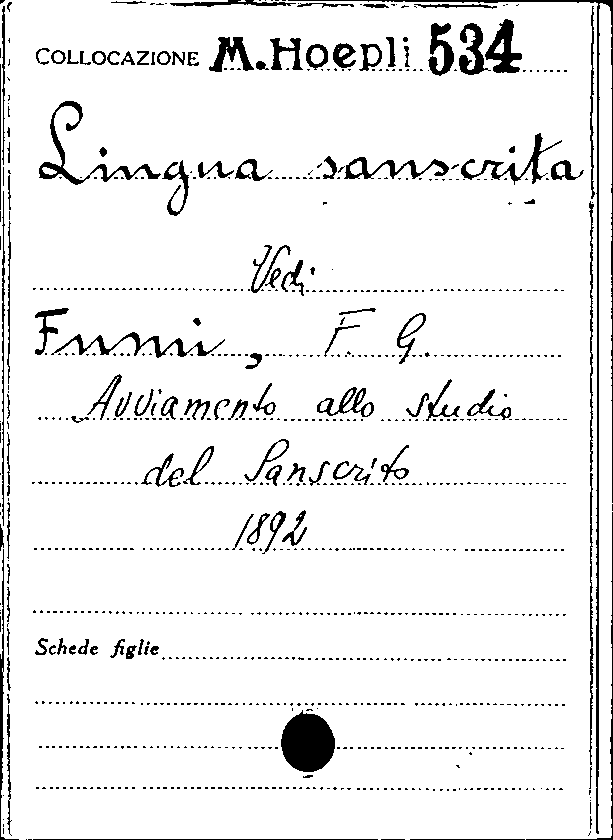 COLLOCAZIONE M.Hoepli 534
Lingua sanscrita
Vedi
Fumi, F. G.
Avviamento allo studio
del Sanscrito
1892
Schede figlie